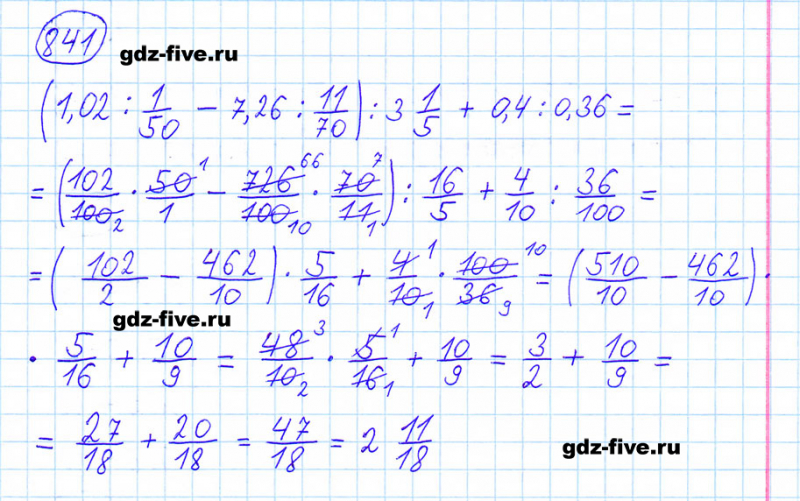 841
gdz-five.ru
(1,02 : 1/50 − 7,26 : 11/70) : 3 1/5 + 0,4 : 0,36 =
= (102/100 2 · 50 1/1 − 726 66/100 10 · 70 7/11 1) : 16/5 + 4/10 : 36/100 =
= (102/2 − 462/10) · 5/16 + 4 1/10 1 · 100 10/36 9 = (510/10 − 462/10) ·
gdz-five.ru
· 5/16 + 10/9 = 48 3/10 2 · 5 1/16 1 + 10/9 = 3/2 + 10/9 =
= 27/18 + 20/18 = 47/18 = 2 11/18
gdz-five.ru